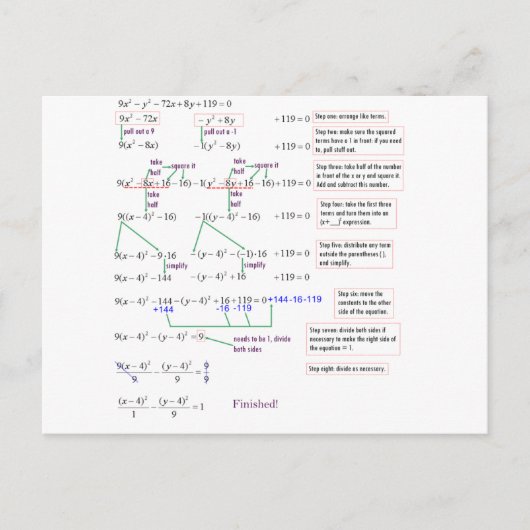 9x² − y² − 72x + 8y + 119 = 0
9x² − 72x − y² + 8y + 119 = 0
Step one: arrange like terms.
pull out a 9 pull out a -1
9(x² − 8x) −1(y² − 8y) + 119 = 0
Step two: make sure the squared
terms have a 1 in front-if you need
to, pull stuff out.
take half square it take half square it
9(x² − 8x + 16 − 16) − 1(y² − 8y + 16 − 16) + 119 = 0
Step three: take half of the number
in front of the x or y and square it.
Add and subtract this number.
take half take half
9((x − 4)² − 16) −1((y − 4)² − 16) + 119 = 0
Step four: take the first three
terms and turn them into an
(x+___)² expression.
9(x − 4)² − 9·16 −(y − 4)² − (−1)·16 + 119 = 0
Step five: distribute any term
outside the parentheses ( ),
and simplify.
simplify simplify
9(x − 4)² − 144 −(y − 4)² + 16 + 119 = 0
9(x − 4)² − 144 − (y − 4)² + 16 + 119 = 0 +144 -16 -119
+144 -16 -119
Step six: move the
constants to the other
side of the equation.
9(x − 4)² − (y − 4)² = 9
needs to be 1, divide
both sides
Step seven: divide both sides if
necessary to make the right side of
the equation = 1.
9(x − 4)²/9 − (y − 4)²/9 = 9/9
Step eight: divide as necessary.
(x − 4)²/1 − (y − 4)²/9 = 1
Finished!